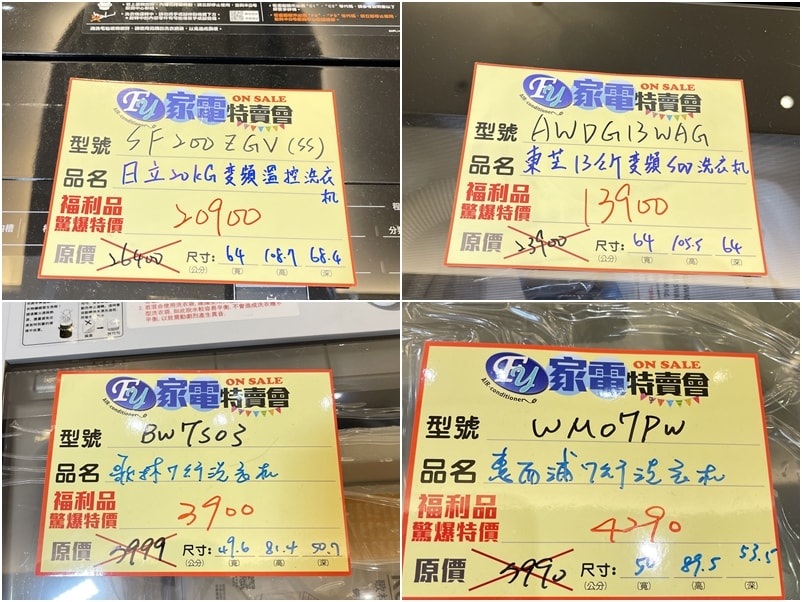 Fy 家電特賣會
ON SALE
AIR-conditioner
型號 SF200ZGV(SS)
品名 日立20KG 变頻溫控洗衣机
福利品
驚爆特價 20900
原價 26400 尺寸: 64 108.7 68.4
(公分) (寬) (高) (深)
Fy 家電特賣會
ON SALE
AIR-conditioner
型號 AWDG13WAG
品名 東芝13公斤变頻SDD洗衣机
福利品
驚爆特價 13900
原價 23900 尺寸: 64 105.5 64
(公分) (寬) (高) (深)
Fy 家電特賣會
ON SALE
AIR-conditioner
型號 BW7S03
品名 歌林7公斤洗衣机
福利品
驚爆特價 3900
原價 5999 尺寸: 49.6 81.4 50.7
(公分) (寬) (高) (深)
Fy 家電特賣會
ON SALE
AIR-conditioner
型號 WM07PW
品名 惠而浦7公斤洗衣机
福利品
驚爆特價 4290
原價 5990 尺寸: 50 89.5 53.5
(公分) (寬) (高) (深)